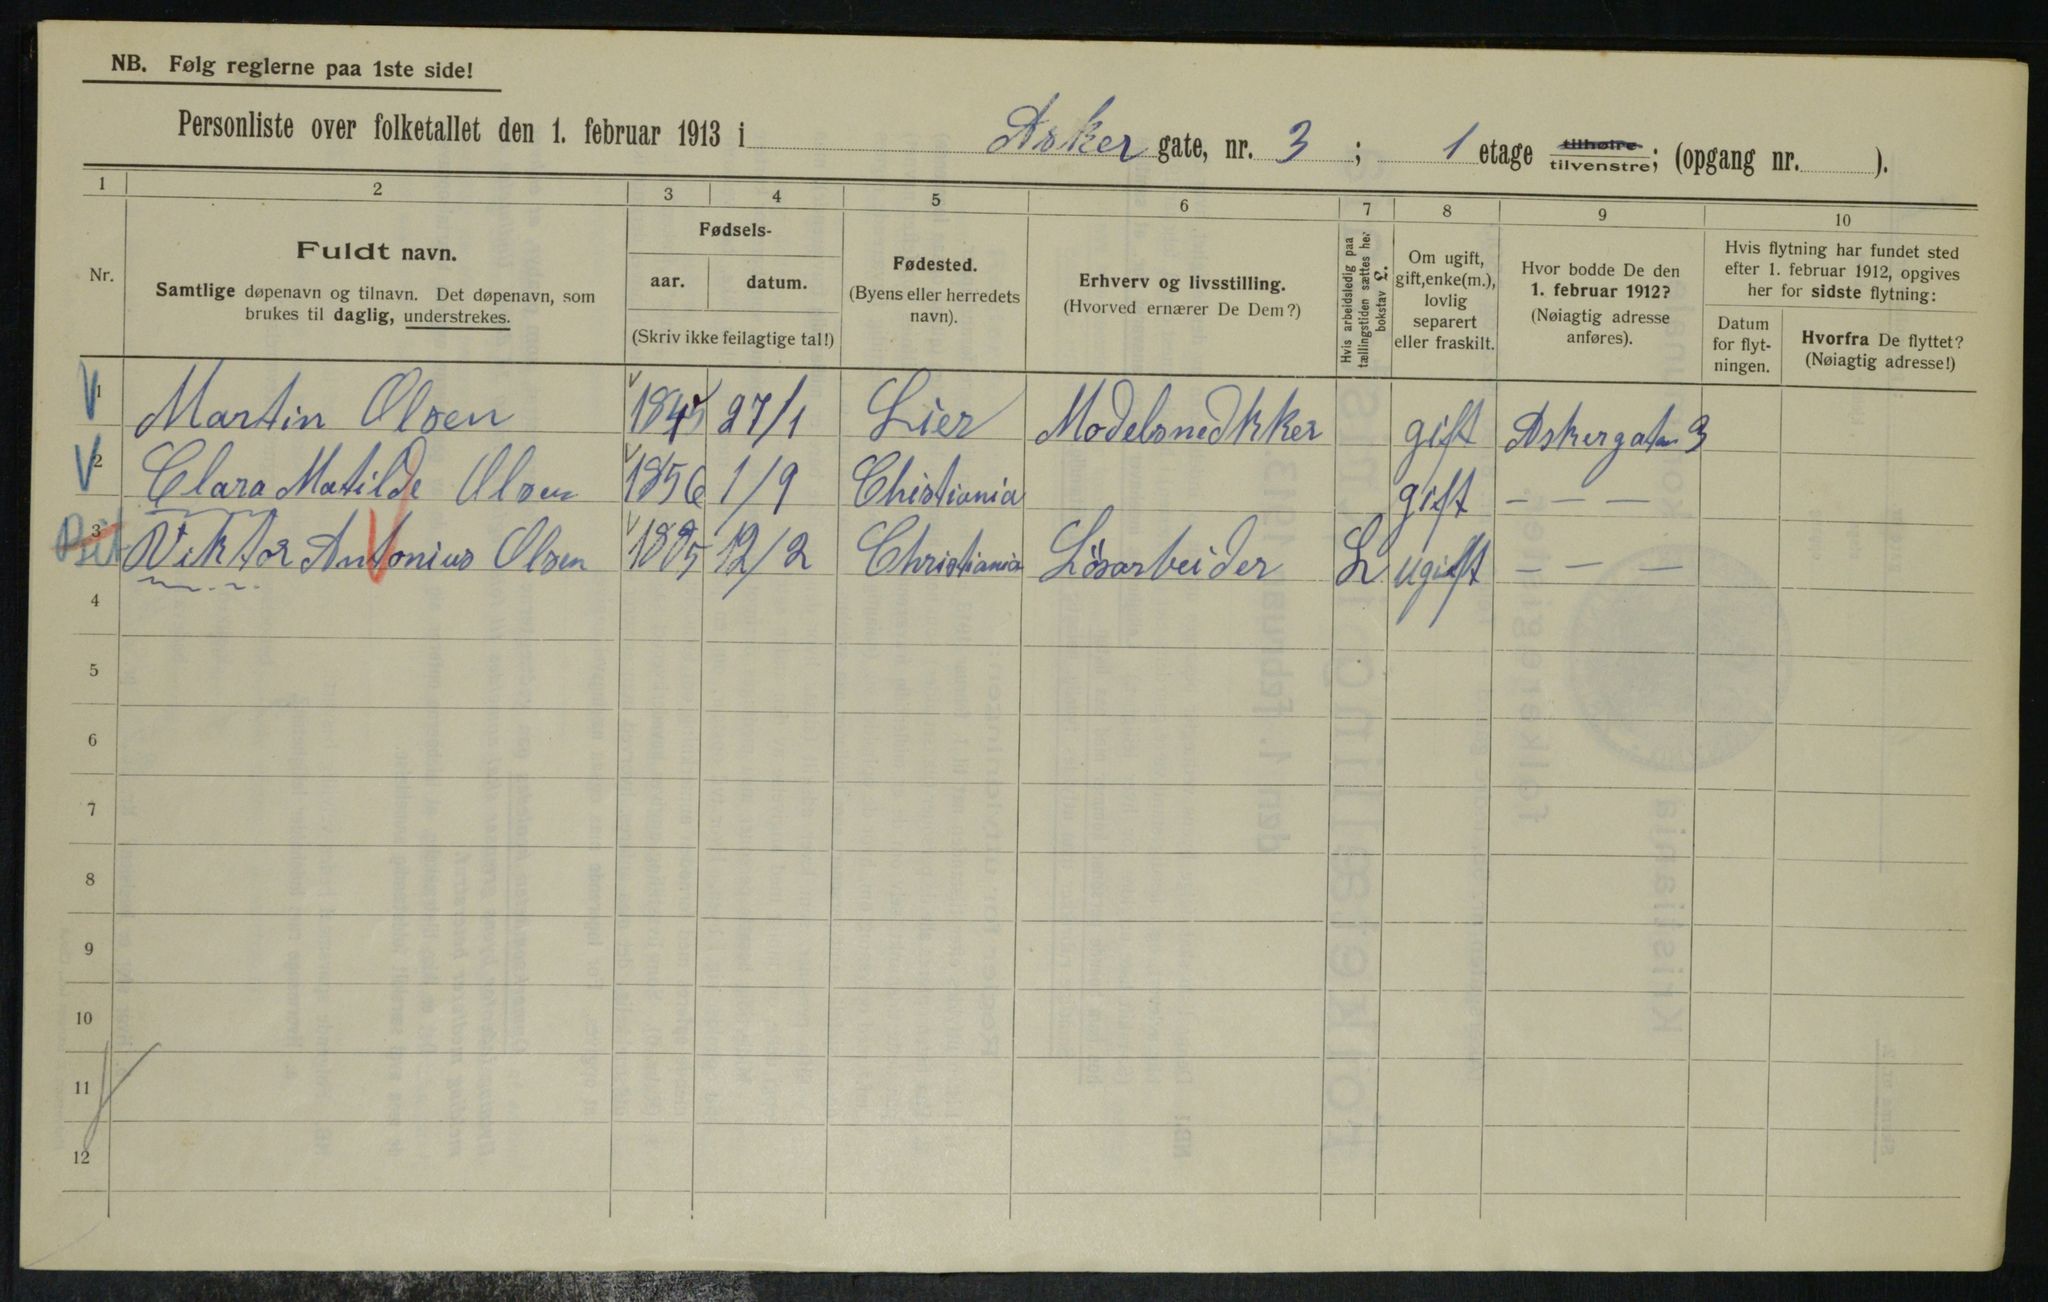 NB. Følg reglerne paa 1ste side!
Personliste over folketallet den 1. februar 1913 i Asker gate, nr. 3 ; 1 etage tilhøire tilvenstre; (opgang nr. ).
1 2 3 4 5 6 7 8 9 10
Nr.
Fuldt navn.
Samtlige døpenavn og tilnavn. Det døpenavn, som
brukes til daglig, understrekes.
Fødsels-
aar. datum.
(Skriv ikke feilagtige tal!)
Fødested.
(Byens eller herredets
navn).
Erhverv og livsstilling.
(Hvorved ernærer De Dem?)
Hvis arbeidsledig paa
tællingstiden sættes her
bokstav L.
Om ugift,
gift, enke(m.),
lovlig
separert
eller fraskilt.
Hvor bodde De den
1. februar 1912?
(Nøiagtig adresse
anføres).
Hvis flytning har fundet sted
efter 1. februar 1912, opgives
her for sidste flytning:
Datum
for flyt-
ningen.
Hvorfra De flyttet?
(Nøiagtig adresse!)
1 Martin Olsen 27/1 Lier Modelsnedkker gift Askergaten 3
2 Clara Matilde Olsen 1856 1/9 Chistiania gift — — —
3 Viktor Antonius Olsen 1885 12/2 Christiania Løsarbeider L ugift — — —
4
5
6
7
8
9
10
11
12